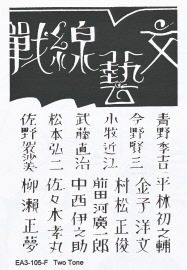 文藝戰線
青野季吉
今野賢三
小牧近江
武藤直治
松本弘二
佐野袈裟美
平林初之輔
金子洋文
村松正俊
前田河廣一郎
中西伊之助
佐々木孝丸
柳瀬正夢
EA3-105-F Two Tone